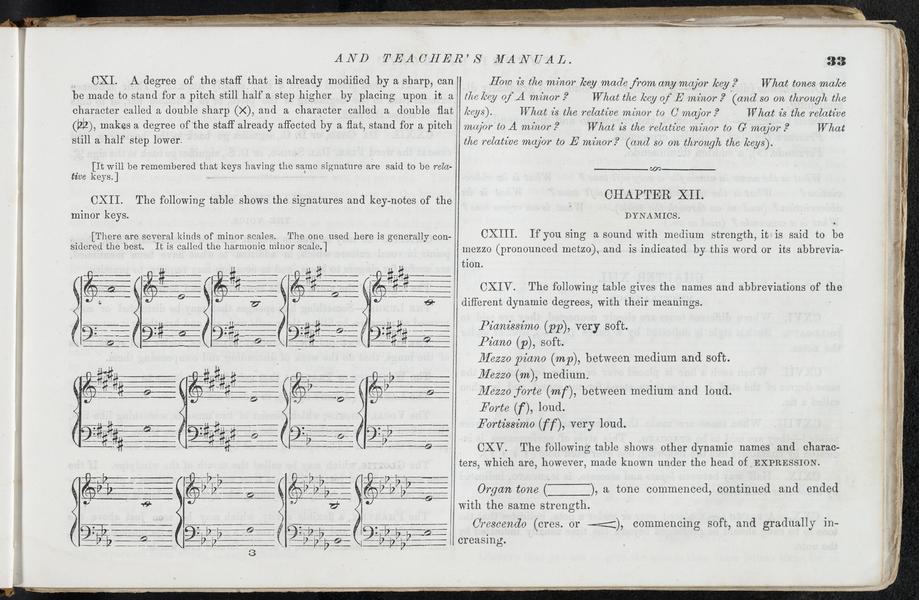 AND TEACHER'S MANUAL.
33
CXI. A degree of the staff that is already modified by a sharp, can
be made to stand for a pitch still half a step higher by placing upon it a
character called a double sharp (X), and a character called a double flat
(♭♭), makes a degree of the staff already affected by a flat, stand for a pitch
still a half step lower.
[It will be remembered that keys having the same signature are said to be rela-
tive keys.]
CXII. The following table shows the signatures and key-notes of the
minor keys.
[There are several kinds of minor scales. The one used here is generally con-
sidered the best. It is called the harmonic minor scale.]
3
How is the minor key made from any major key? What tones make
the key of A minor? What the key of E minor? (and so on through the
keys). What is the relative minor to C major? What is the relative
major to A minor? What is the relative minor to G major? What
the relative major to E minor? (and so on through the keys).
CHAPTER XII.
DYNAMICS.
CXIII. If you sing a sound with medium strength, it is said to be
mezzo (pronounced metzo), and is indicated by this word or its abbrevia-
tion.
CXIV. The following table gives the names and abbreviations of the
different dynamic degrees, with their meanings.
Pianissimo (pp), very soft.
Piano (p), soft.
Mezzo piano (mp), between medium and soft.
Mezzo (m), medium.
Mezzo forte (mf), between medium and loud.
Forte (f), loud.
Fortissimo (ff), very loud.
CXV. The following table shows other dynamic names and charac-
ters, which are, however, made known under the head of EXPRESSION.
Organ tone ( ), a tone commenced, continued and ended
with the same strength.
Crescendo (cres. or <), commencing soft, and gradually in-
creasing.